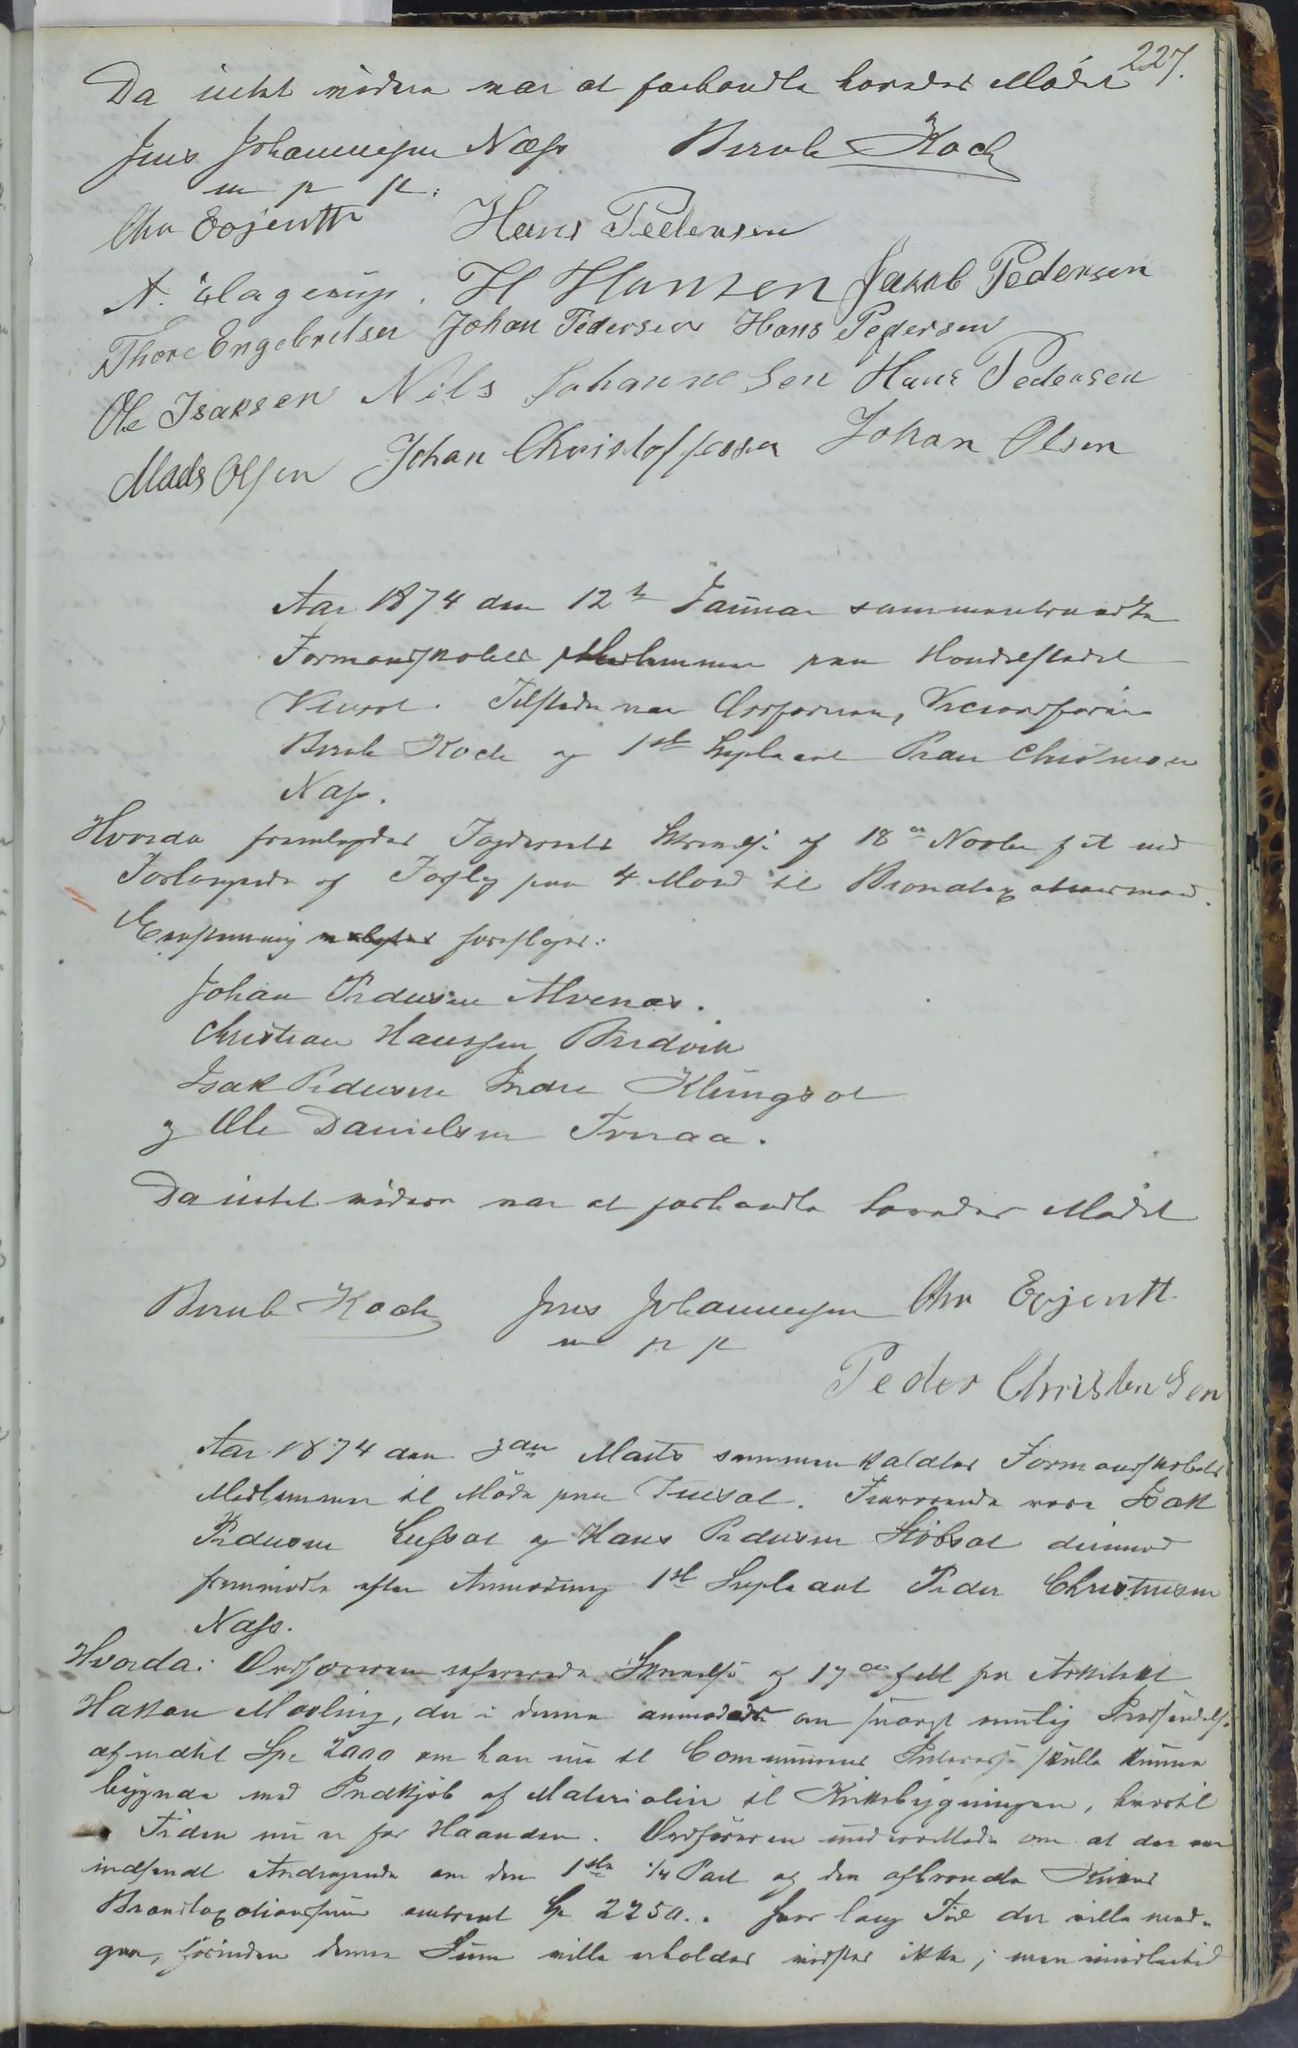 227.
Da intet videre var at forhandle hævedes Mødet
Jens Johannessen Næss Bernh Koch
m p p:
Chr Evjenth Hans Pedersen
A. Hagerup. H Hansen Jakob Pedersen
Thore Engebretsen Johan Pedersen Hans Pedersen
Ole Isaksen Nils Johannesen Hans Pedersen
Mads Olsen Johan Christoffersen Johan Olsen
Aar 1874 den 12te Januar sammentraadte
Formandskabets Medlemmer paa Handelsstedet
Tilstede var Ordføreren, Viceordfører
Bernh Koch og 1ste Supleant Peder Christensen
Næss.
Hvorda fremlagdes Fogderiets Skrivelse af 18de Novbr f A med
Forlangende af Forslag paa 4 Mænd til Brandtaxationsmænd.
Eenstemmig valgtes foresloges:
Johan Pedersen Alvenæs.
Christian Hanssen Bredvik
Isak Pedersen Indre Klungset
og Ole Danielsen Fornaa.
Da intet videre var at forhandle hævedes Mødet
Bernh Koch Jens Johannessen Chr Evjenth
m p p
Peder Christensen
Aar 1874 den 3die Marts sammenkaldtes Formandskabets
Medlemmer til Møde paa Tuset. Fraværende vare Isak
Pedersen og Hans Pedersen derimod
fremmødte efter Anmodning 1ste Supleant Peder Christensen
Næss.
Hvorda: Ordføreren refererede Skrivelse af 17de f M fra Arkitekt
Haakon Mosling, der i denne anmodede om snarest mulig Indsendelse
af indtil Spd 2000 om han nu til Communens Interesse skulle kunne
begynde med Indkjøb af Materialier til Kirkebygningen, hvortil
Tiden nu er for Haanden. Ordføreren underrettede om at der var
indsendt Andragende om den 1ste 1/4 Part af den afbrændte Kirkes
Brandtaxationssum omtrent Sp 2250.. hvor lang Tid der ville med-
gaa, førinden denne Sum ville erholdes vidstes ikke; men imidlertid